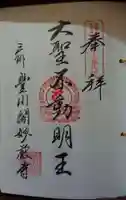 奉拝
大聖不動明王
三州豊川閣妙厳寺